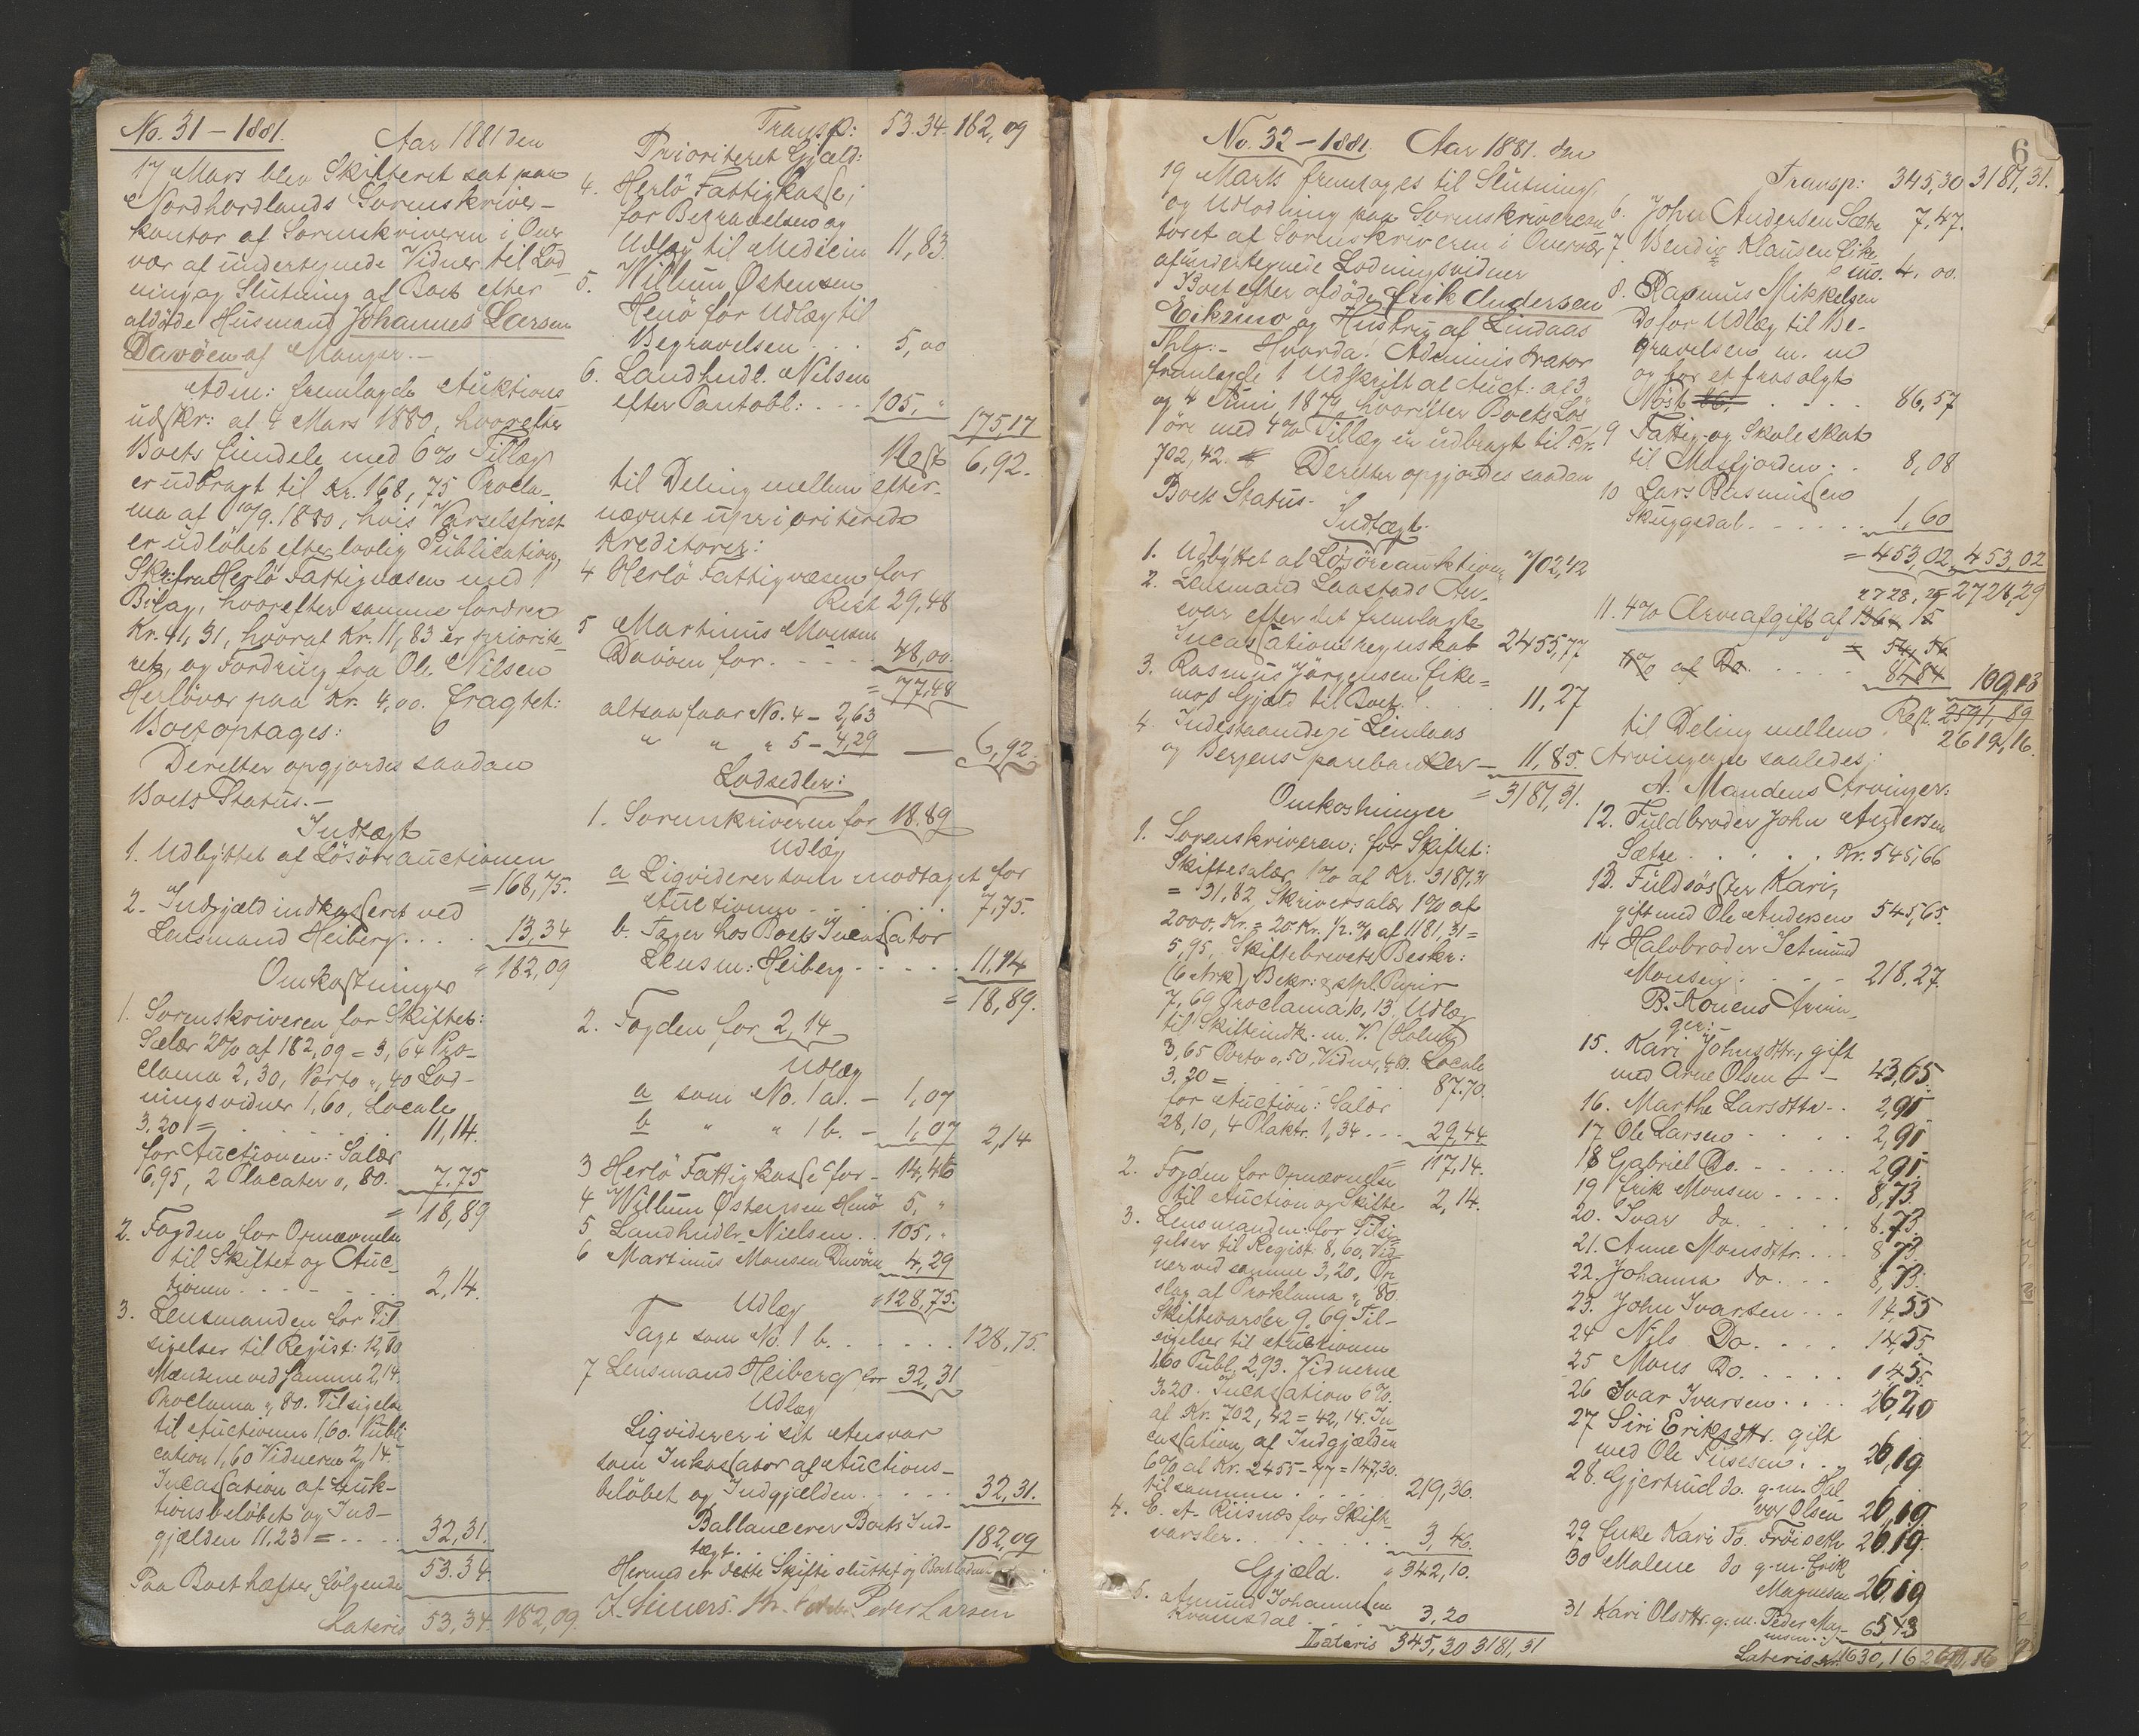 No. 31 – 1881. Aar 1881 den
17 Mars blev Skifteret sat paa
Nordhordlands Sorenskriver-
kontor af Sorenskriveren i Over
vær af undertegnede Vidner til Lod
ning og Slutning af Boet efter
afdöde Husmand Johannes Larsen
Davöen af Manger.–
Adm: fremlagde Auktions
udskr: af 4 Mars 1880, hvorefter
Boets Eiendele med 6% Tillæg
er udbragt til Kr. 168,75 Procla-
ma af 10/9. 1880, hvis Varselsfrist
er udlöbet efter lovlig Publication,
Skr: fra Herlö Fattigvæsen med 1
Bilag, hvorefter samme fordrer
Kr. 41,31, hvoraf Kr. 11,83 er priorite-
ret, og Fordring fra Ol. Nilsen
Herlövær paa Kr. 4,00. fragtet:
Boet optages:
Derefter opgjordes saadan
Boets Status.–
Indtægt
1. Udbyttet af Lösöreauctionen
= 168,75.
2. Indgjæld indkasseret ved
Lensmand Heiberg. . . . 13,34
" 182,09
Omkostninger
1. Sorenskriveren for Skiftet:
Salær 2% af 182,09 = 3,64 Pro-
clama 2,30, Porto ",40 Lod-
ningsvidner 1,60, Locale
3.20 = . . . . . 11,14.
for Auctionen: Salær
6,95, 2 Placater o,80. 7,75
= 18,89
2. Fogden for Opnævnelse
til Skiftet og Auc-
tionen . . . . . . 2,14.
3. Lensmanden for Til-
sigelser til Regist: 12,80
Mændene ved samme 2,14.
Proclama ",80. Tilsigelse
til Auctionen 1,60. Publi
cation 1,60 Vidnerne 2,14.
Incassation af Auk-
tionsbelöbet og Ind-
gjælden 11.23 = . . . . 32,31.
53.34.
Paa Boet hæfter fölgende
Lateris 53,34. 182,09.
Transp: 53.34. 182,09
Prioriteret Gjæld:
4. Herlö Fattigkasse,
for Begravelsen og
Udlæg til Medicin 11,83.
5. Willum Östensen
Henö for Udlæg til
Begravelsen . . . 5,00
6. Landhndl. Nilsen
efter Pantobl: . . . 105, "
175,17
Rest 6,92.
til Deling mellem efter-
nævnte uprioriterede
Kreditorer:
4 Herlö Fattigvæsen for
Rest 29,48
5 Martinus Monsen
Davöen for . . . . 48,00.
= 77,48
altsaa faar No. 4 – 2,63
" " " 5 – 4,29 — 6,92
Lodsedler:
1. Sorenskriveren for 18.89
Udlæg
a Liqviderer som modtaget for
Auctionen . . . . . . . 7,75.
b. Tager hos Boets Incassator
Lensm: Heiberg . . . . . 11,14
= 18,89.
2. Fogden for 2,14
Udlæg
a som No. 1 a. – 1,07
b " " 1 b. – 1,07 2,14
3 Herlö Fattigkasse for – 14,46
4 Willum Östensen Henö 5, "
5 Landhndlr. Nielsen . . 105, "
6 Martinus Monsen Davöen 4,29
" 128,75.
Udlæg
Tage som No. 1 b. . . . . . . 128,75.
7 Lensmand Heiberg for 32,31
Udlæg
Liqviderer i sit Ansvar
som Inkassator af Auctions-
belöbet og Indgjælden . . . . . 32,31.
Ballancerer Boets Ind-
tægt . . . . . 182,09
Hermed er dette Skifte sluttet og Boet
Peder Larsen
6
No. 32 – 1881. Aar 1881. den
19 Marts fremtoges til Slutning
og Udlodning paa Sorenskriverkon
toret af Sorenskriveren i Overvær
af undertegnede Lodningsvidner
Boet efter afdöde Erik Andersen
Eikemo og Hustru af Lindaas
Thlg:– Hvorda: Administrator
fremlagde 1 Udskrift af Auct: af 3
og 4 Juni 1879, hvorefter Boets Lös
öre med 4% Tillæg er udbragt til Kr.
702,42. Derefter opgjordes saadan
Boets Status.
Indtægt.
1. Udbyttet af Lösöreauktionen 702,42
2. Lensmand Laastads An-
svar efter det fremlagte
Incassationsregnskab 2455,77
3. Rasmus Jörgensen Eike-
mos Gjæld til Boet . . . . 11,27
4. Indestaaende i Lindaas
og Bergens Sparebanker – 11,85.
= 3181,31.
Omkostninger
1. Sorenskriveren: for Skiftet:
Skiftesalær 1% af Kr. 3181,31
= 31,82 Skriversalær 1% af
2000. Kr. = 20 Kr. 1/2 % af 1181,31 =
5,95, Skiftebrevets Beskr:
(6 Ark), Bekr: & stpl. Papir
7,69 Proclama 10,13. Udlæg
til Skifteindk. m. V.
3,65 Porto o,50. Vidner, Locale
3.20 = . . . . . . . 87.70.
for Auction: Salær
28,10, 4 Plaktr. 1,34 . . . 29,44
= 117,14.
2. Fogden for Opnævnelse
til Auction og Skifte 2,14.
3. Lensmanden: for Tilsi-
gelser til Regist. 8,60, Vid-
ner ved samme 3,20, Op
slag af Proklama ",80.
Skiftevarsler 9,69 Til-
sigelser til Auctionen
1,60 Publ. 2,93. Vidnerne
3.20. Incassation 6%.
af Kr. 702,42 = 42,14. In
cassation af Indgjælden
6% af Kr. 2455–77 = 147,30.
tilsammen . . . . . 219,36.
4. E. A. Riisnæs for Skift-
varsler . . . . . . . . . 3,46.
Gjæld. " 342,10.
5. Amund Johannessen
Kvamsdal . . . 3,20
Lateris 345,30 3181,31
Transp: 345,30 3181,31.
6. John Andersen Sætre 7,47.
7. Bendix Klausen Eike-
mo. 4,00.
8. Rasmus Mikkelsen
Do for Udlæg til Be-
gravelsen m. m
og for et frasolgt
Nöst . . . . . 86,57
9 Fattig- og Skoleskat
til Masfjorden: . 8,08
10 Lars Rasmussen
Skuggedal . . . . . . 1,60
= 453,02. 453,02
2728,29 2728,29
11. 4% Arveafgift af 1364,15
= 54,56
% af Do. . . . 109,13
Rest. 2591,89
til Deling mellem 2619,16.
Arvingerne saaledes:
A. Mandens Arvinger:
12. Fuldbroder John Andersen
Sætre . . . . . Kr. 545,66
13. Fuldsöster Kari,
gift med Ole Andersen 545,65.
14 Halvbroder Setmund
Monsen . . . – 218,27.
B. Konens Arvin-
ger:–
15. Kari Johnsdttr., gift
med Arne Olsen – – 43,65.
16. Marthe Larsdttr . . 2,91
17 Ole Larsen . . . . 2,91
18 Gabriel Do. . . . . . 2,91
19 Erik Monsen . . . . 8,73
20. Ivar do. . . . . . 8,73.
21. Anne Monsdttr. . . . 8,73.
22. Johanna do . . . . 8,73.
23. John Ivarsen . . . 14,55
24 Nils Do. . . . . 14,55
25 Mons Do. . . . . 14,55.
26 Ivar Ivarsen . . . . 26,20
27 Siri Eriksdttr. gift
med Ole . . . 26,19
28. Gjertrud do. g. m. Hal
vor Olsen 26,19.
29 Enke Kari Do. Fröiseth 26,19.
30 Malene do g. m. Erik
Magnesen 26,19
31 Kari Olsdttr. g. m. Peder Mag-
nesen . . 65,43
Lateris Kr. 1630,16 2619,16